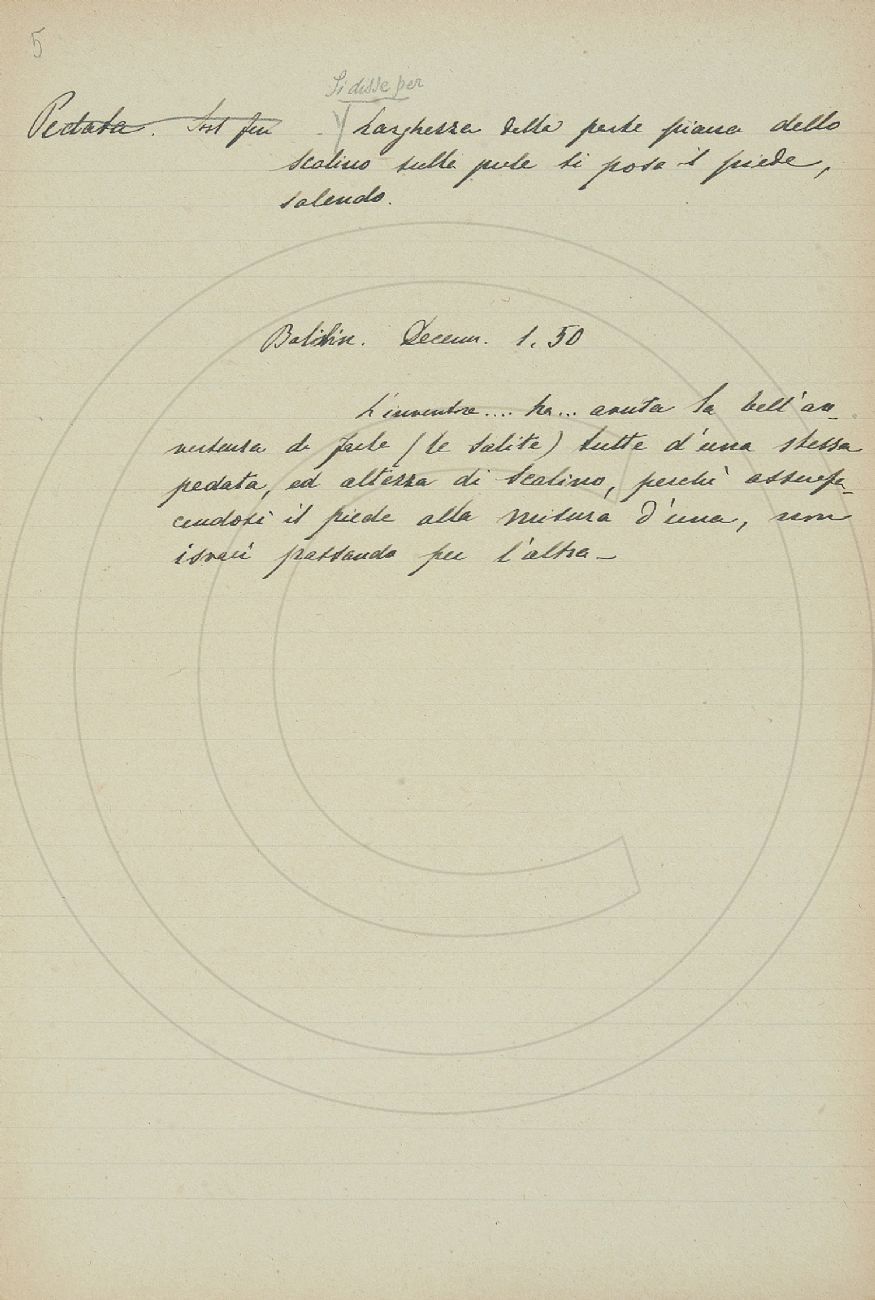 5
Si disse per
Pedata. Sost. fem. Larghezza della parte piana dello
scalino sulla quale si posa il piede,
salendo.
Baldin. Decenn. 1. 50
L'inventore.... ha... avuta la bell'av-
vertenza di farle (le salite) tutte d'una stessa
pedata, ed altezza di scalino, perchè assuefa-
cendosi il piede alla misura d'una, non
isvari passando per l'altra —